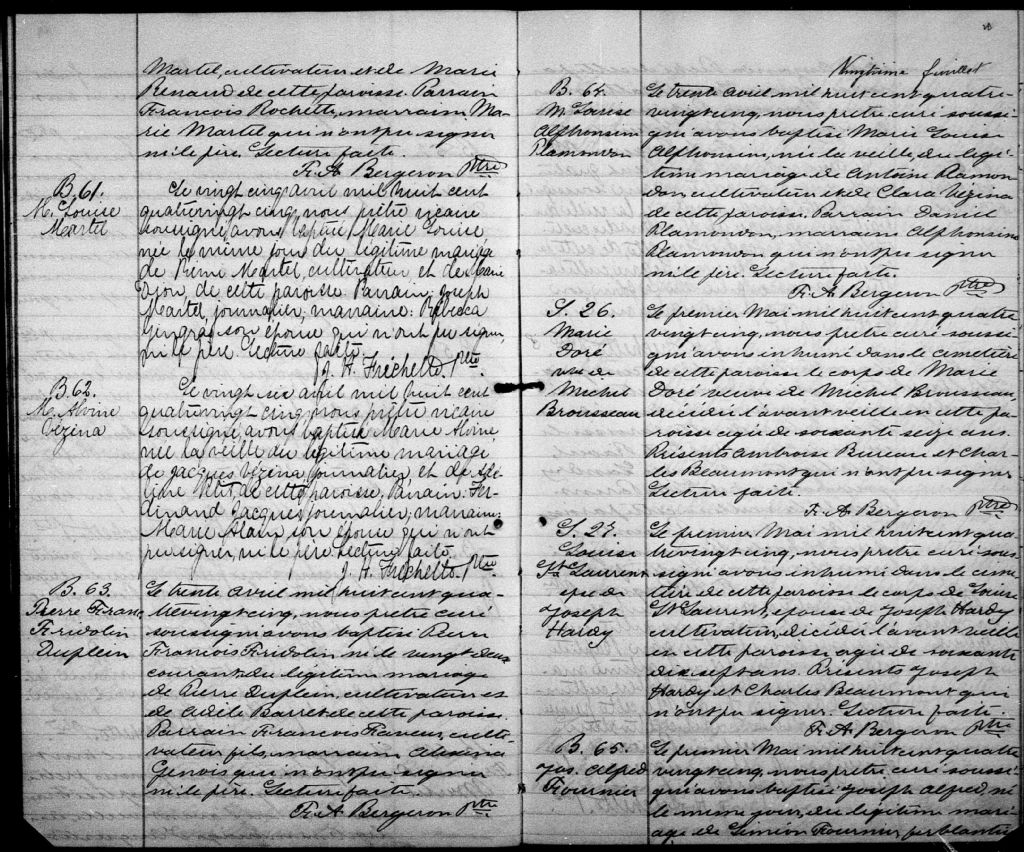 Martel, cultivateur et de Marie
Renaud de cette paroisse. Parrain
François Rochette, marraine, Ma-
rie Martel qui n'ont pu signer
ni le père. Lecture faite.
F. A. Bergeron Ptre
B. 61.
M. Louise
Martel
Le vingt cinq avril mil huit cent
quatrevingt cinq, nous prêtre vicaire
soussigné avons baptisé Marie Louise
née le même jour du légitime mariage
de Pierre Martel, cultivateur et de Marie
de cette paroisse. Parrain: Joseph
Martel, journalier, marraine: Rébecca
Gingras son épouse qui n'ont pu signer,
ni le père. Lecture faite.
J. H. Fréchette, Ptre
B. 62.
M. Alvine
Vézina
Le vingt six avril mil huit cent
quatrevingt cinq nous prêtre vicaire
soussigné avons baptisé Marie Alvine
née la veille du légitime mariage
de Jacques Vézina journalier et de
de cette paroisse. Parrain: Fer-
dinand Jacques journalier, marraine:
Marie Alain son épouse qui n'ont
pu signer, ni le père. Lecture faite.
J. H. Fréchette, Ptre.
B. 63.
Pierre Franc.
Fridolin
Duplein
Le trente avril mil huit cent qua-
trevingt cinq, nous prêtre curé
soussigné avons baptisé Pierre
François Fridolin né le vingt deux
courant du légitime mariage
de Pierre Duplein, cultivateur et
de Adèle Barret de cette paroisse.
Parrain François culti-
vateur fils, marraine
Genois qui n'ont pu signer
ni le père. Lecture faite.
F. A. Bergeron Ptre.
Vingtième feuillet
B. 64.
M. Louise
Alphonsine
Plamondon
Le trente avril mil huit cent quatre
vingt cinq, nous, prêtre curé soussi-
gné avons baptisé Marie Louise
Alphonsine, née la veille, du légi-
time mariage de Antoine Plamon-
don cultivateur et de Clara Vézina
de cette paroisse. Parrain Daniel
Plamondon, marraine Alphonsine
Plamondon qui n'ont pu signer
ni le père. Lecture faite.
F. A. Bergeron Ptre
S. 26
Marie
Doré
vve de
Michel
Brousseau
Le premier Mai mil huit cent quatre
vingt cinq, nous prêtre curé soussi-
gné avons inhumé dans le cimetière
de cette paroisse le corps de Marie
Doré veuve de Michel Brousseau,
décédée l'avant veille en cette pa-
roisse agée de soixante seize ans.
Présents Ambroise Bureau et Char-
les Beaumont qui n'ont pu signer.
Lecture faite.
F. A. Bergeron Ptre
S. 27.
Louise
St Laurent
épse de
Joseph
Hardy
Le premier Mai mil huit cent qua-
trevingt cinq, nous prêtre curé sous-
signé avons inhumé dans le cime-
tière de cette paroisse le corps de Louise
St Laurent, épouse de Joseph Hardy
cultivateur, décédée l'avant veille
en cette paroisse agée de soixante
dix sept ans. Présents Joseph
Hardy et Charles Beaumont qui
n'ont pu signer. Lecture faite.
F. A. Bergeron Ptre
B. 65.
Jos. Alfred
Fournier
Le premier Mai mil huit cent quatre
vingt cinq, nous prêtre curé soussi-
gné avons baptisé Joseph Alfred, né
le même jour, du légitime mari-
age de Siméon Fournier, ferblantier